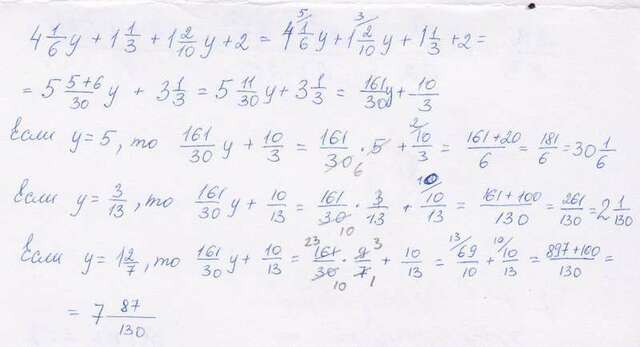 4 1/6 y + 1 1/3 + 1 2/10 y + 2 = 4 1/6 (5/ y + 1 2/10 (3/ y + 1 1/3 + 2 =
= 5 (5+6)/30 y + 3 1/3 = 5 11/30 y + 3 1/3 = 161/30 y + 10/3
Если y = 5, то 161/30 y + 10/3 = 161/30 6 · 5 + 2/ 10/3 = (161+20)/6 = 181/6 = 30 1/6
Если y = 3/13, то 161/30 y + 10/13 = 161/30 10 · 3/13 + 10/ 10/13 = (161+100)/130 = 261/130 = 2 1/130
Если y = 1 2/7, то 161/30 y + 10/13 = 23 161/30 10 · 9/7 3 1 + 10/13 = 13/ 69/10 + 10/ 10/13 = (897+100)/130 =
= 7 87/130